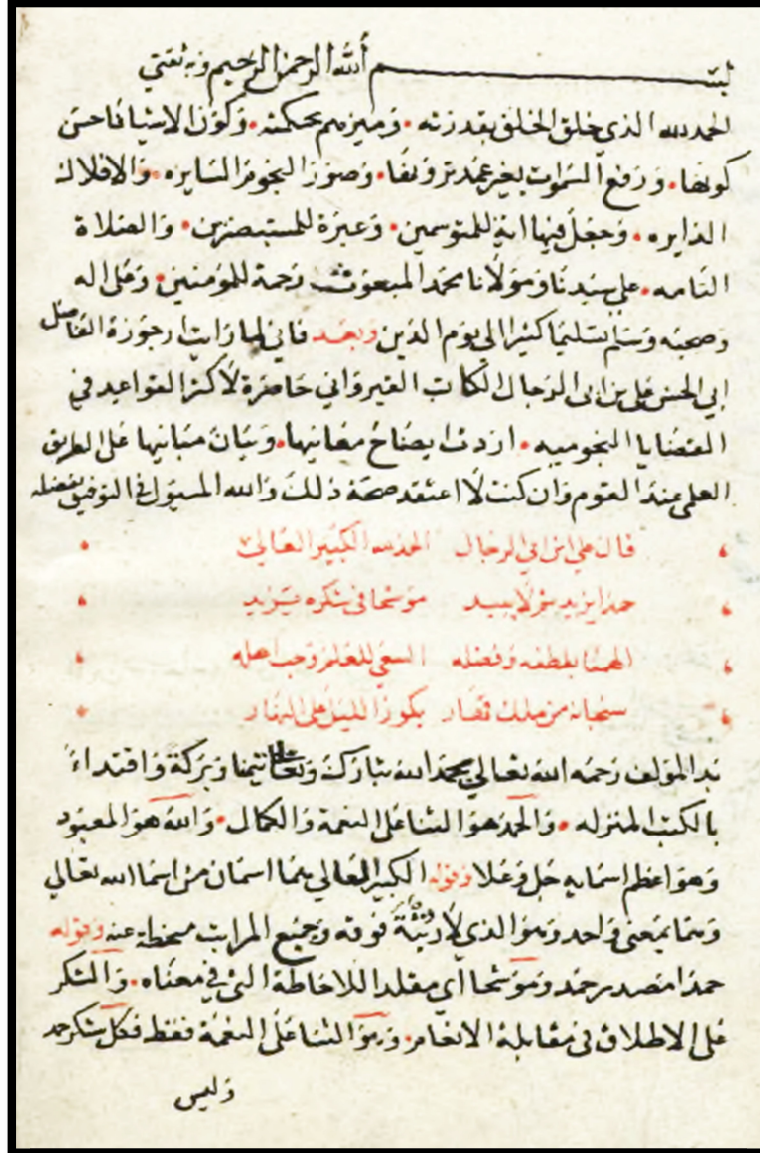 بسم الله الرحمن الرحيم وبه ثقتي
الحمد لله الذي خلق الخلق بقدرته • وميزهم بحكمته • وكون الاشيا فاحسن
كونها • ورفع السموات بغير عمد ترونها • وصور النجوم السايره • والافلاك
الدايره • وجعل فيها اية للمتوسمين • وعبرة للمستبصرين • والصلاة
التامه • على سيدنا ومولانا محمد المبعوث رحمة للمؤمنين • وعلى اله
وصحبه وسلم تسليما كثيرا الى يوم الدين وبعد فاني لما رايت ارجوزة الفاضل
ابي الحسن علي بن ابي الرجال الكاتب القيرواني حاصرة لاكثر القواعد في
القضايا النجوميه • اردت ايضاح معانيها • وبيان مبانيها على الطريق
العلمي عند القوم وان كنت لا اعتقد صحة ذلك والله المسؤل في التوفيق بفضله
قال علي ابن ابي الرجال الحمد لله الكبير العالي
حمدا يزيد ثم لا يبيد موشحا في شكره مزيد
الهمنا بلطفه وفضله السعي للعلم وحب اهله
سبحانه من ملك قهار يكور الليل على النهار
بدا المؤلف رحمه الله تعالى بحمد الله تبارك وتعالى تيمنا وبركة واقتداء
بالكتب المنزله • والحمد هو الثنا على النعمة والكمال • والله هو المعبود
وهو اعظم اسمايه جل وعلا وقوله الكبير العالي هما اسمان من اسما الله تعالى
وهما بمعنى واحد وهو الذي لا رتبة فوقه وجميع المراتب منحطة عنه وقوله
حمدا مصدر حمد وموشحا اي مقلدا للاحاطة التي في معناه • والشكر
على الاطلاق في مقابلة الانعام • وهو الثنا على النعمة فقط فكل شكر حمد
وليس